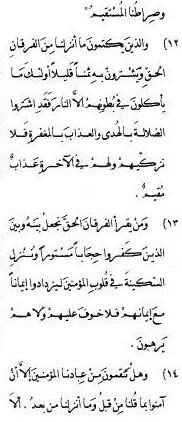 وصراطنا المستقيم"
(١٢) والذين يكتمون ما أنزلنا من الفرقان
الحق ويشترون به ثمناً قليلاً أولئك ما
يأكلون في بطونهم إلا النار فقد اشتروا
الضلالة بالهدى والعذاب بالمغفرة فلا
نزكيهم ولهم في الآخرة عذاب
مقيم
(١٣) ومن يقرأ الفرقان الحق نجعل بينه وبين
الذين كفروا حجاباً مستوراً وننزل
السكينة في قلوب المؤمنين ليزدادوا إيماناً
مع إيمانهم فلا خوف عليهم ولا هم
يرهبون
(١٤) وهل تنقمون من عبادنا المؤمنين إلا أن
آمنوا بما قلنا من قبل وما أنزلنا من بعد. ألا